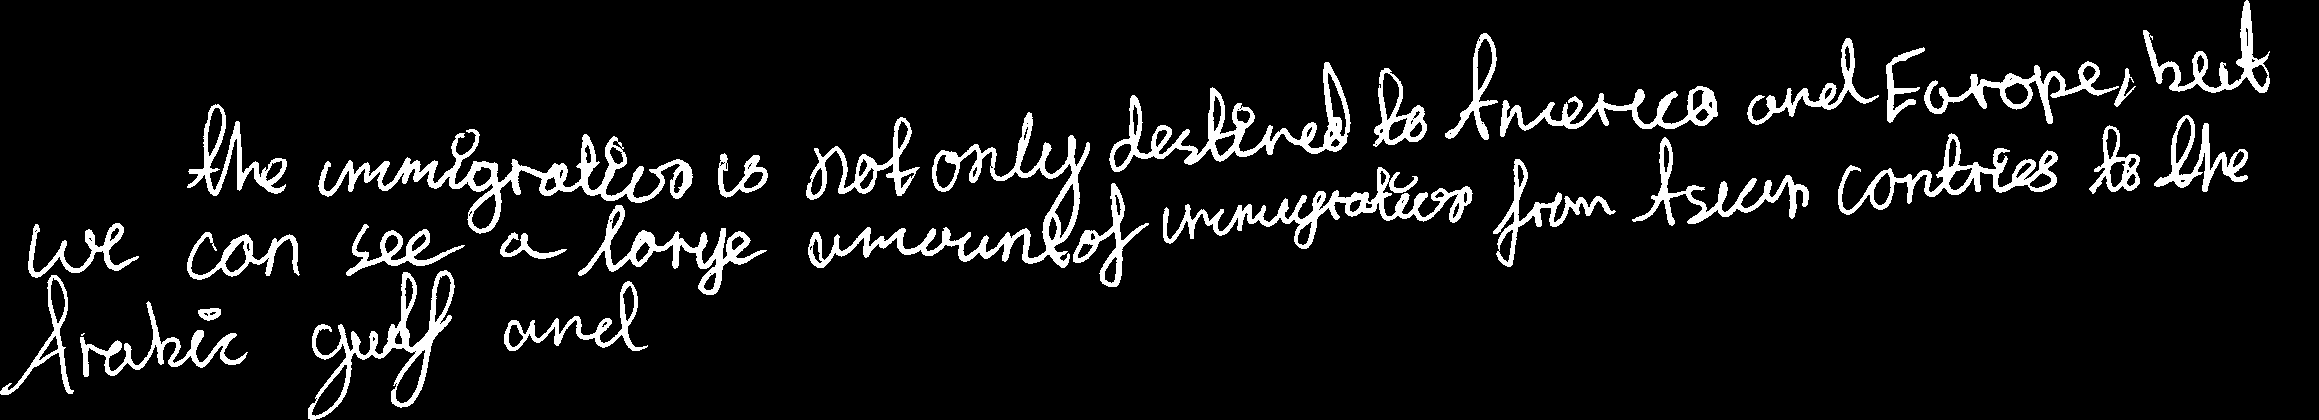 the immigration is not only destined to America and Europe, but
we can see a large amount of immigration from Asian contries to the
Arabic gulf and